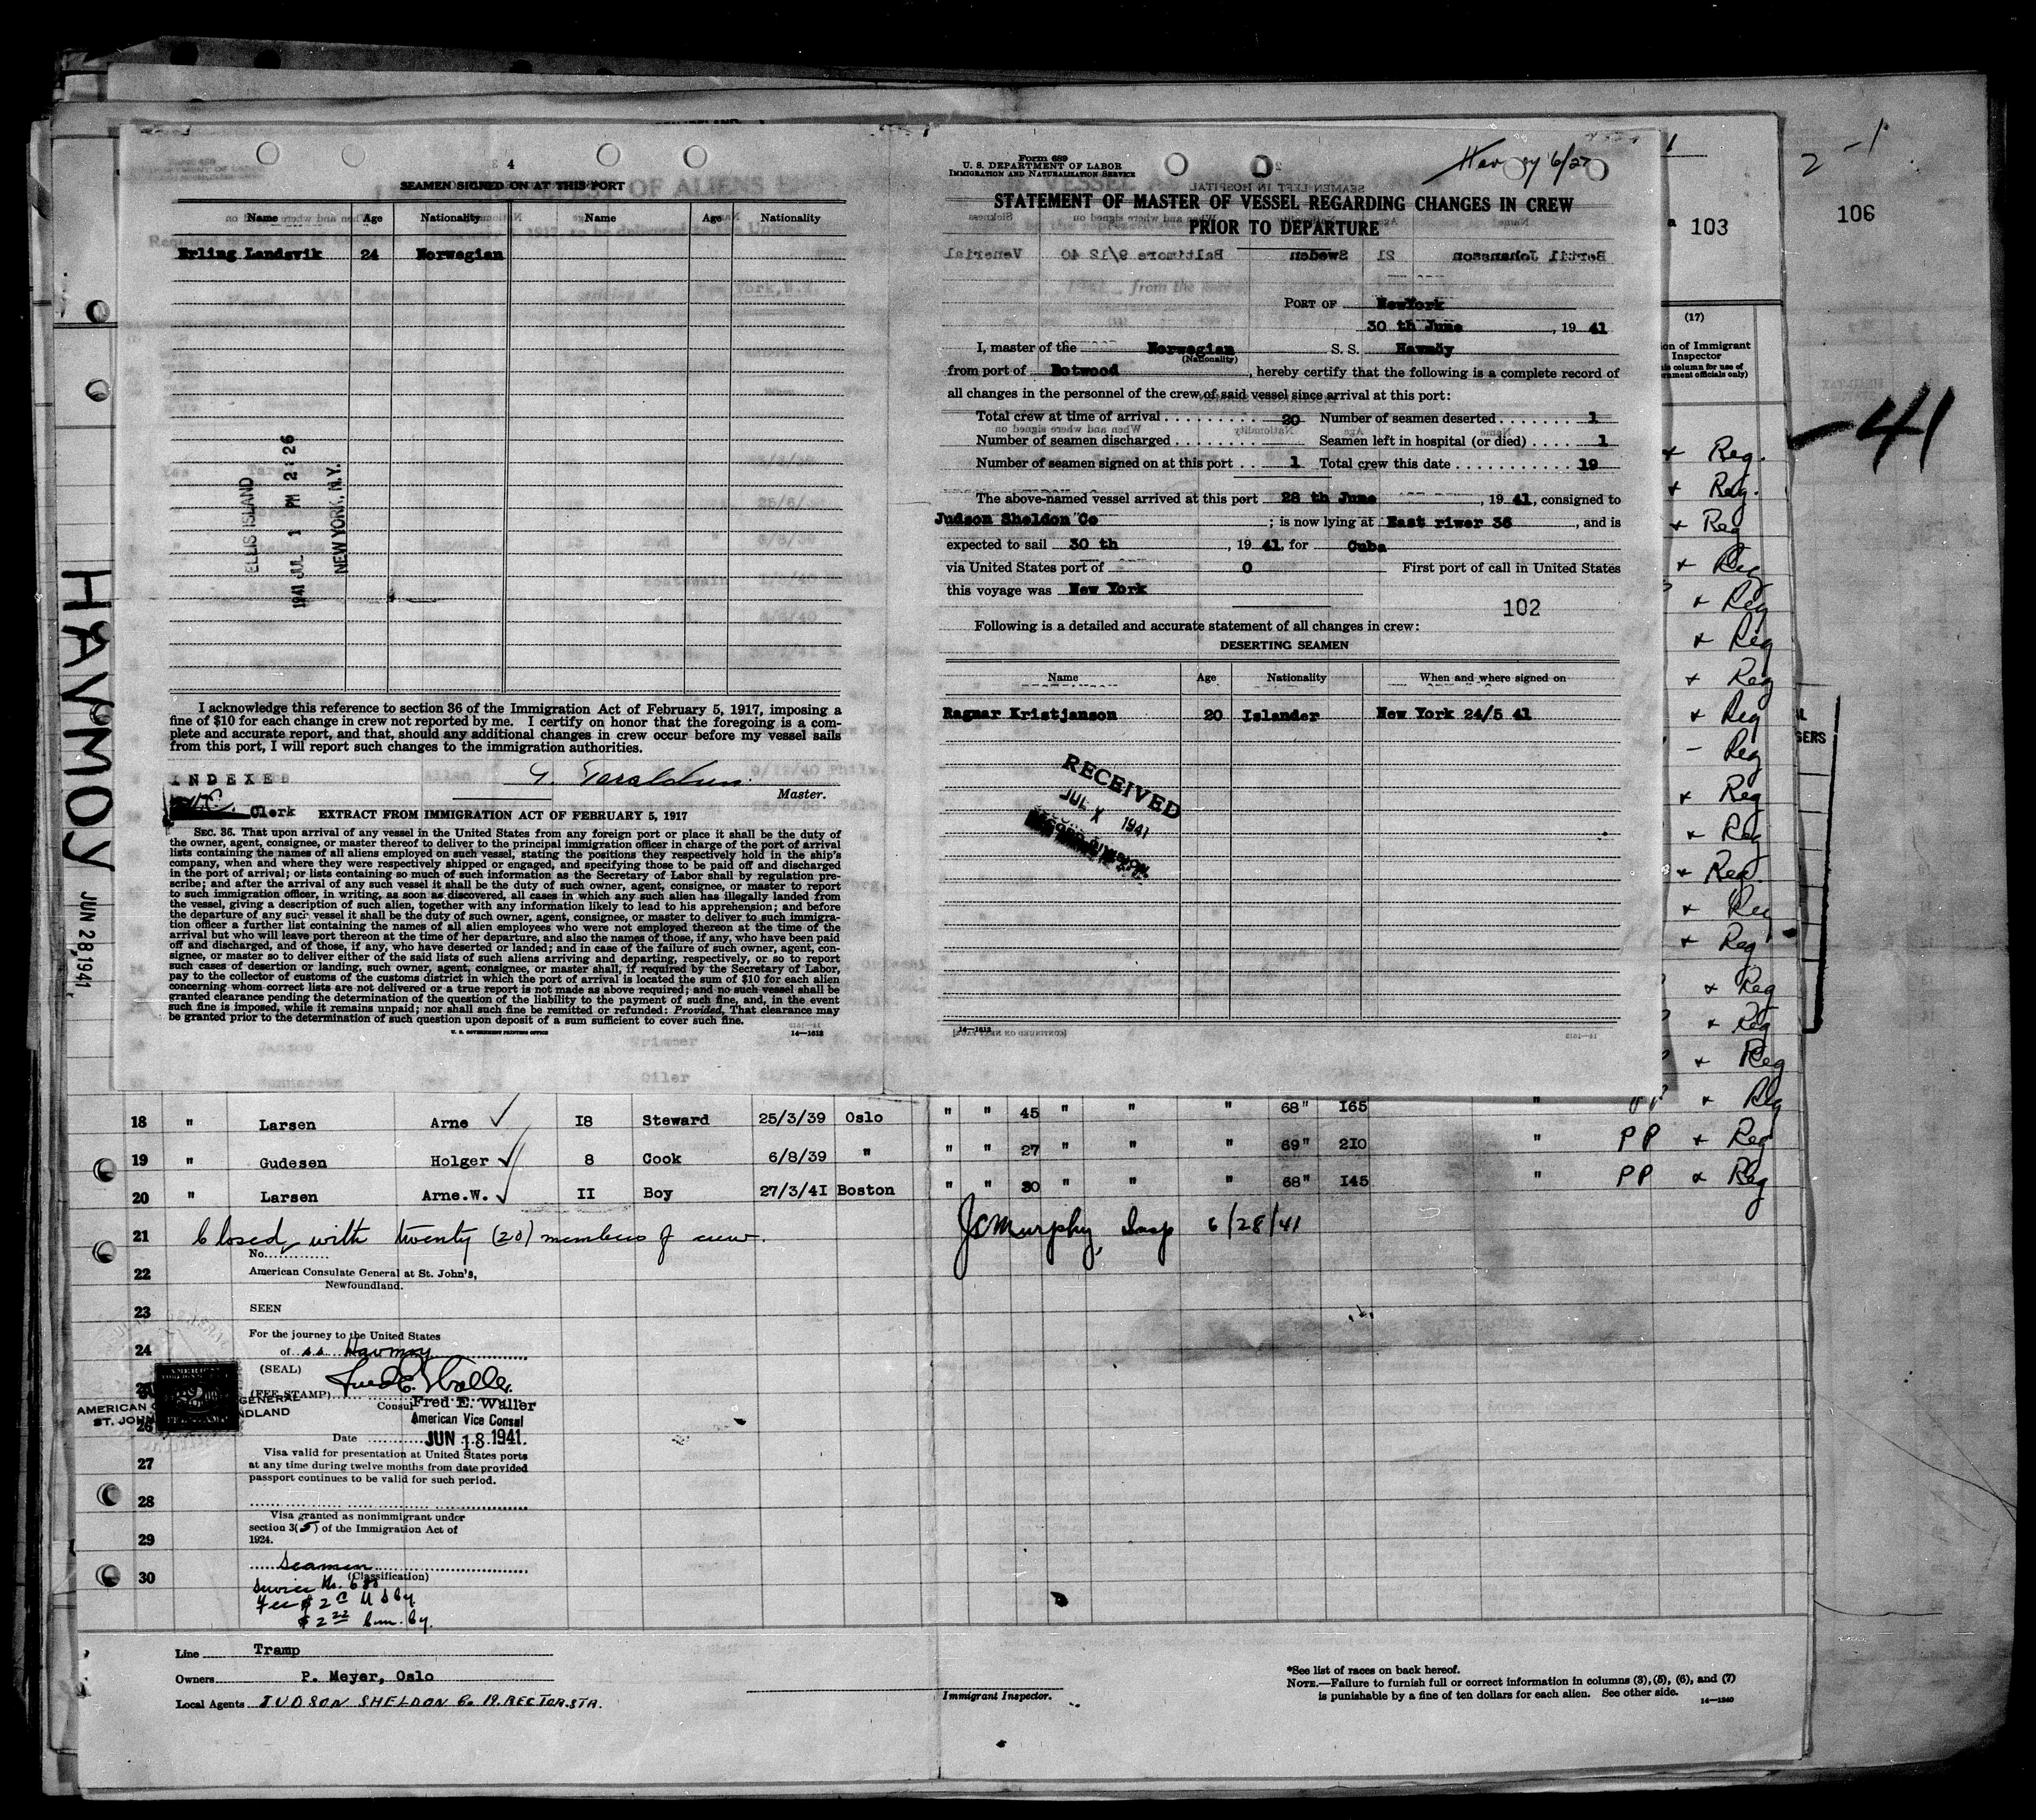 4
SEAMEN SIGNED ON AT THIS PORT
Name Age Nationality Name Age Nationality
Erling Landsvik 24 Norwegian
ELLIS ISLAND
1941 JUL 1 PM 22:26
NEW YORK, N.Y.
I acknowledge this reference to section 36 of the Immigration Act of February 5, 1917, imposing a
fine of $10 for each change in crew not reported by me. I certify on honor that the foregoing is a com-
plete and accurate report, and that, should any additional changes in crew occur before my vessel sails
from this port, I will report such changes to the immigration authorities.
INDEXE
Master.
Clerk
EXTRACT FROM IMMIGRATION ACT OF FEBRUARY 5, 1917
SEC. 36. That upon arrival of any vessel in the United States from any foreign port or place it shall be the duty of
the owner, agent, consignee, or master thereof to deliver to the principal immigration officer in charge of the port of arrival
lists containing the names of all aliens employed on such vessel, stating the positions they respectively hold in the ship's
company, when and where they were respectively shipped or engaged, and specifying those to be paid off and discharged
in the port of arrival; or lists containing so much of such information as the Secretary of Labor shall by regulation pre-
scribe; and after the arrival of any such vessel it shall be the duty of such owner, agent, consignee, or master to report
to such immigration officer, in writing, as soon as discovered, all cases in which any such alien has illegally landed from
the vessel, giving a description of such alien, together with any information likely to lead to his apprehension; and before
the departure of any such vessel it shall be the duty of such owner, agent, consignee, or master to deliver to such immigra-
tion officer a further list containing the names of all alien employees who were not employed thereon at the time of the
arrival but who will leave port thereon at the time of her departure, and also the names of those, if any, who have been paid
off and discharged, and of those, if any, who have deserted or landed; and in case of the failure of such owner, agent, con-
signee, or master so to deliver either of the said lists of such aliens arriving and departing, respectively, or so to report
such cases of desertion or landing, such owner, agent, consignee, or master shall, if required by the Secretary of Labor,
pay to the collector of customs of the customs district in which the port of arrival is located the sum of $10 for each alien
concerning whom correct lists are not delivered or a true report is not made as above required; and no such vessel shall be
granted clearance pending the determination of the question of the liability to the payment of such fine, and, in the event
such fine is imposed, while it remains unpaid; nor shall such fine be remitted or refunded: Provided, That clearance may
be granted prior to the determination of such question upon deposit of a sum sufficient to cover such fine.
U. S. GOVERNMENT PRINTING OFFICE 14—1612
Form 689
U. S. DEPARTMENT OF LABOR
IMMIGRATION AND NATURALIZATION SERVICE
STATEMENT OF MASTER OF VESSEL REGARDING CHANGES IN CREW
PRIOR TO DEPARTURE
PORT OF NewYork
30 th June, 1941
I, master of the Norwegian S. S. Havmöy
(Nationality)
from port of Botwood, hereby certify that the following is a complete record of
all changes in the personnel of the crew of said vessel since arrival at this port:
Total crew at time of arrival 20 Number of seamen deserted 1
Number of seamen discharged Seamen left in hospital (or died) 1
Number of seamen signed on at this port 1 Total crew this date 19
The above-named vessel arrived at this port 28 th June, 1941, consigned to
Judson Sheldon Co; is now lying at East riwer 36, and is
expected to sail 30 th, 1941, for Cuba
via United States port of 0 First port of call in United States
this voyage was New York
102
Following is a detailed and accurate statement of all changes in crew:
DESERTING SEAMEN
Name Age Nationality When and where signed on
Ragnar Kristjanson 20 Islander New York 24/5 41
RECEIVED
JUL 1 1941
RECORD DIVISION
14—1612
HAVMOY
JUN 28,1941
103
106
2 -1
-41
(17)
Inspector
+ Reg.
+ Reg.
+ Reg
+ Reg
+ Reg
+ Reg
+ Reg
+ Reg
- Reg
+ Reg
+ Reg
+ Reg
+ Reg
+ Reg
+ Reg
+ Reg
+ Reg
18 " Larsen Arne ✓ 18 Steward 25/3/39 Oslo " " 45 " " " 68" 165 " PP + Reg
19 " Gudesen Holger ✓ 8 Cook 6/8/39 " " " 27 " " " 69" 210 " PP + Reg
20 " Larsen Arne.W. ✓ II Boy 27/3/41 Boston " " 30 " " " 68" 145 " PP + Reg
21 Closed with twenty (20) members of crew. JCMurphy, Insp 6/28/41
No.
22 American Consulate General at St. John's,
Newfoundland.
23 SEEN
For the journey to the United States
24 of s.s. Havmoy
(SEAL)
(FEE STAMP)
Consul
Fred E. Waller
American Vice Consul
26
Date JUN 18.1941.
Visa valid for presentation at United States ports
27 at any time during twelve months from date provided
passport continues to be valid for such period.
28
Visa granted as nonimmigrant under
section 3(5) of the Immigration Act of
29 1924.
Seamen
30 (Classification)
Service No. 688
Line Tramp
Owners P. Meyer, Oslo
Local Agents JUDSON SHELDON Co 19.RECTOR.STR.
Immigrant Inspector.
*See list of races on back hereof.
NOTE.—Failure to furnish full or correct information in columns (3), (5), (6), and (7)
is punishable by a fine of ten dollars for each alien. See other side. 14—1240